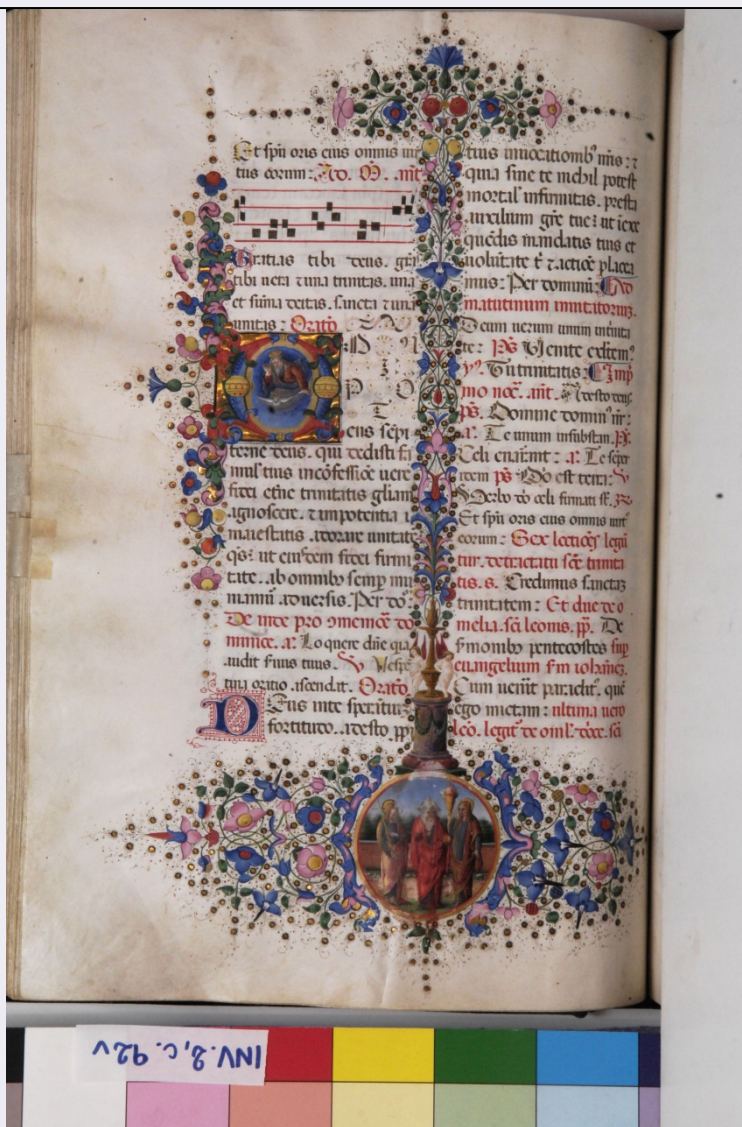 Et spū oris eius omnis uir
tus eorum:
Gratias tibi deus. grās
tibi uera ⁊ una trinitas. una
et sūma deitas. sancta ⁊ una
unitas: Oratō
eus sēpi
terne deus. qui dedisti fa
mul' tuis in cōfessiōe uere
fidei etīne trinitatis gliam
agnoscere. ⁊ in potentia
maiestatis adorare unitatē
qs: ut eiusdem fidei firmi
tate. ab omnibȝ semp mu
niamur aduersis. Per dō:
De inde pro
minice. a: Loquere dñe quia
audit seruus tuus. Vespe
tina oratio ascendat. Oratō
Deus in te sperātiuȝ
fortitudo. adesto ppi
tius inuocationibȝ nr̄is: ⁊
quia sine te nichil potest
mortal' infirmitas. presta
auxilium grē tue: ut in exe
quēdis mandatis tuis et
uolūtate t' ⁊ actiōe placea
mus: Per dominū:
matutinum inuitatorium.
Deum uerum unum in trinita
te: ps Venite exltem⁹
Tu trinitatis:
mo noc. ant. Adesto deus
ps. Domine domin⁹ nr̄:
a: Te unum in substan. Ps.
Celi enarrant: a: Te semper
idem ps Dn̄i est terra:
Verbo dn̄i celi firmati st.
Et spū oris eius omnis uirt
eorum: Sex lectiones legū
tur. de tractatu scē trinita
tis. s. Credimus sanctaȝ
trinitatem: Et due de o
melia. scī leonis. pp. De
sermonibo pentecostes sup
euangelium sm iohānez.
Cum uenit paraclit⁹. quē
ego mictam: ultima uero
leō. legit' de omī.
INV. 2, c. 92v